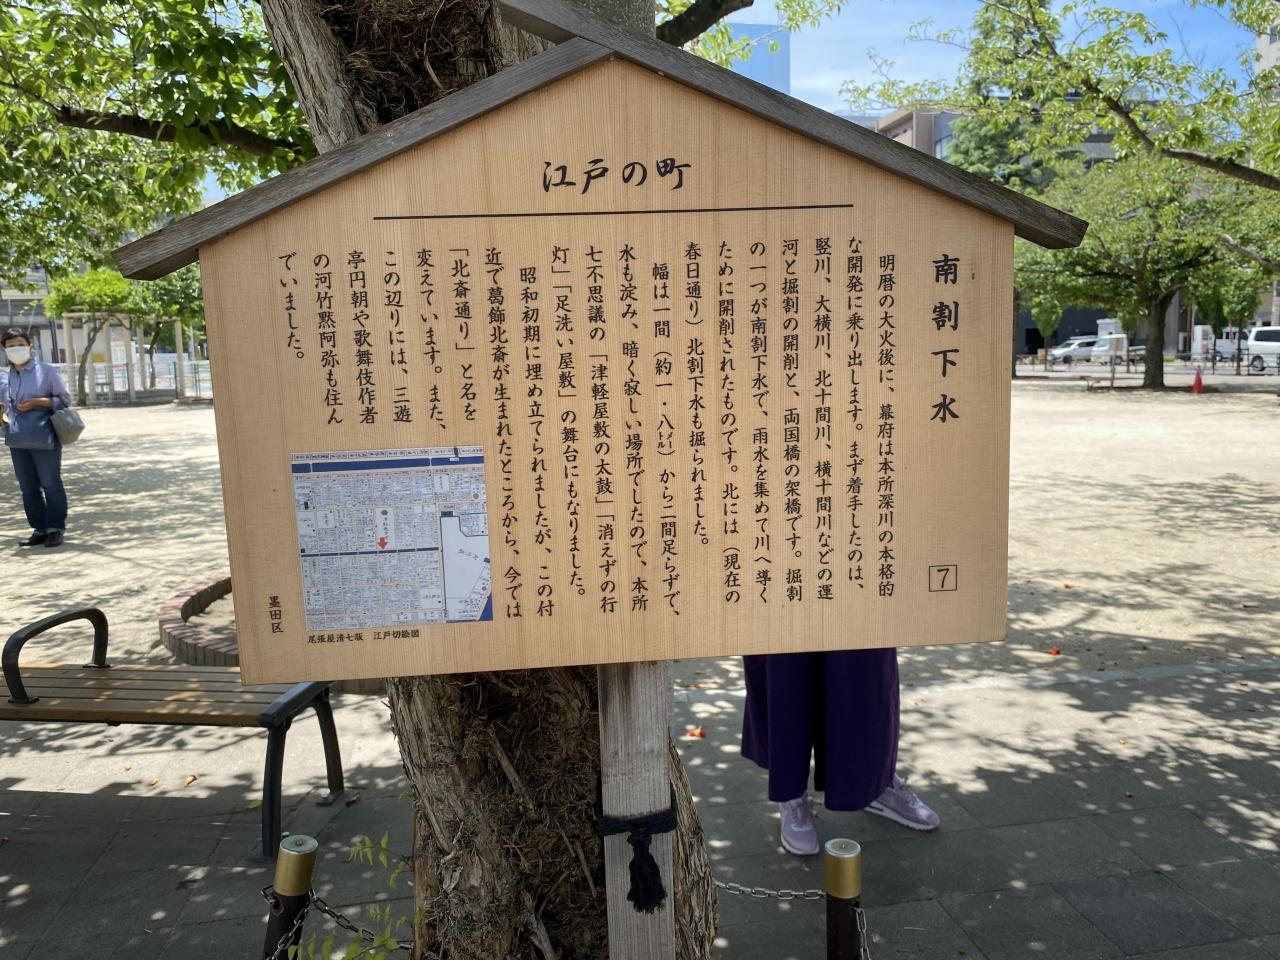 江戸の町
南割下水
7
明暦の大火後に、幕府は本所深川の本格的
な開発に乗り出します。まず着手したのは、
竪川、大横川、北十間川、横十間川などの運
河と掘割の開削と、両国橋の架橋です。掘割
の一つが南割下水で、雨水を集めて川へ導く
ために開削されたものです。北には（現在の
春日通り）北割下水も掘られました。
幅は一間（約一・八㍍）から二間足らずで、
水も淀み、暗く寂しい場所でしたので、本所
七不思議の「津軽屋敷の太鼓」「消えずの行
灯」「足洗い屋敷」の舞台にもなりました。
昭和初期に埋め立てられましたが、この付
近で葛飾北斎が生まれたところから、今では
「北斎通り」と名を
変えています。また、
この辺りには、三遊
亭円朝や歌舞伎作者
の河竹黙阿弥も住ん
でいました。
尾張屋清七版　江戸切絵図
墨田区